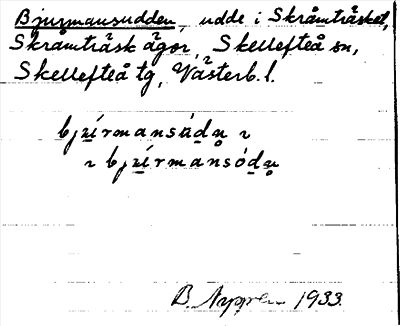 Bjurmansudden, udde i Skråmträsket,
Skråmträsk ägor, Skellefteå sn,
Skellefteå tg, Västerb. l.
bju̲írmansúd̲u̥ ı
ı bju̲írmansód̲u̥
B. 1933.